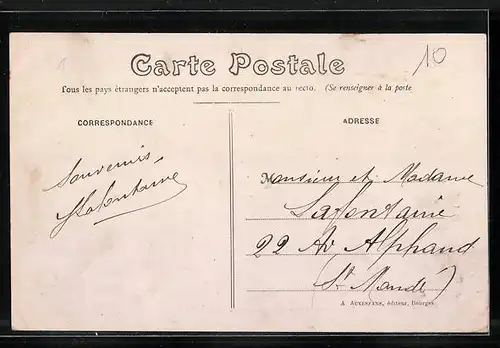 10
Carte Postale
Tous les pays étrangers n'acceptent pas la correspondance au recto. (Se renseigner à la poste
CORRESPONDANCE
ADRESSE
Souvenirs
Lafontaine
Monsieur et Madame
Lafontaine
22 Av. Alphand
St Mandé
A. AUXENFANS, éditeur, Bourges